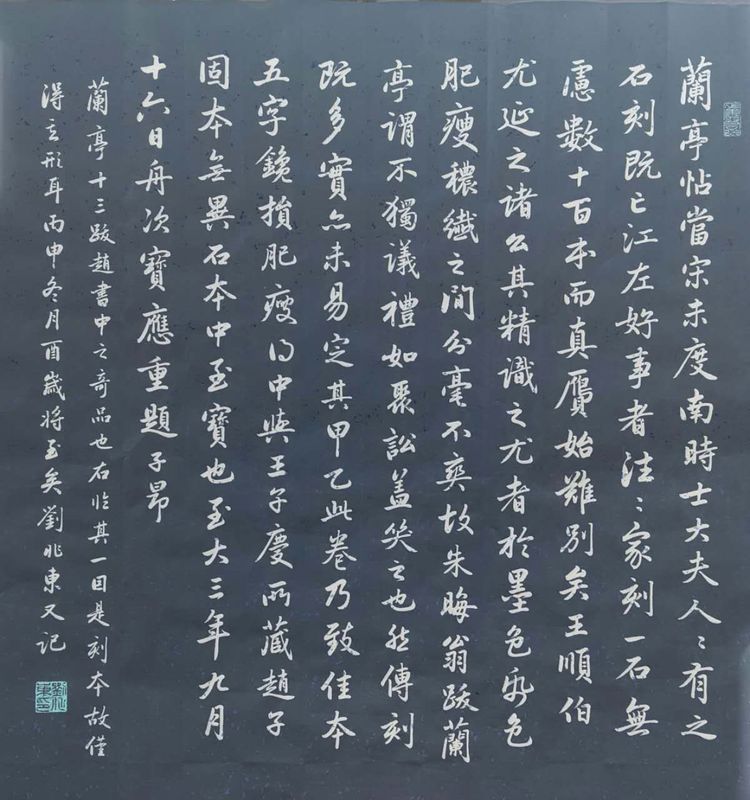 蘭亭帖當宋未度南時士大夫人〻有之
石刻既亡江左好事者往〻家刻一石無
慮數十百本而真贗始難別矣王順伯
尤延之諸公其精識之尤者於墨色紙色
肥瘦穠纖之間分毫不爽故朱晦翁跋蘭
亭謂不獨議禮如聚訟蓋笑之也然傳刻
既多實亦未易定其甲乙此卷乃致佳本
五字鑱損肥瘦得中與王子慶所藏趙子
固本無異石本中至寶也至大三年九月
十六日舟次寶應重題子昂
蘭亭十三跋趙書中之奇品也右臨其一因是刻本故僅
得其形耳丙申冬月酉歲將至矣劉兆東又記